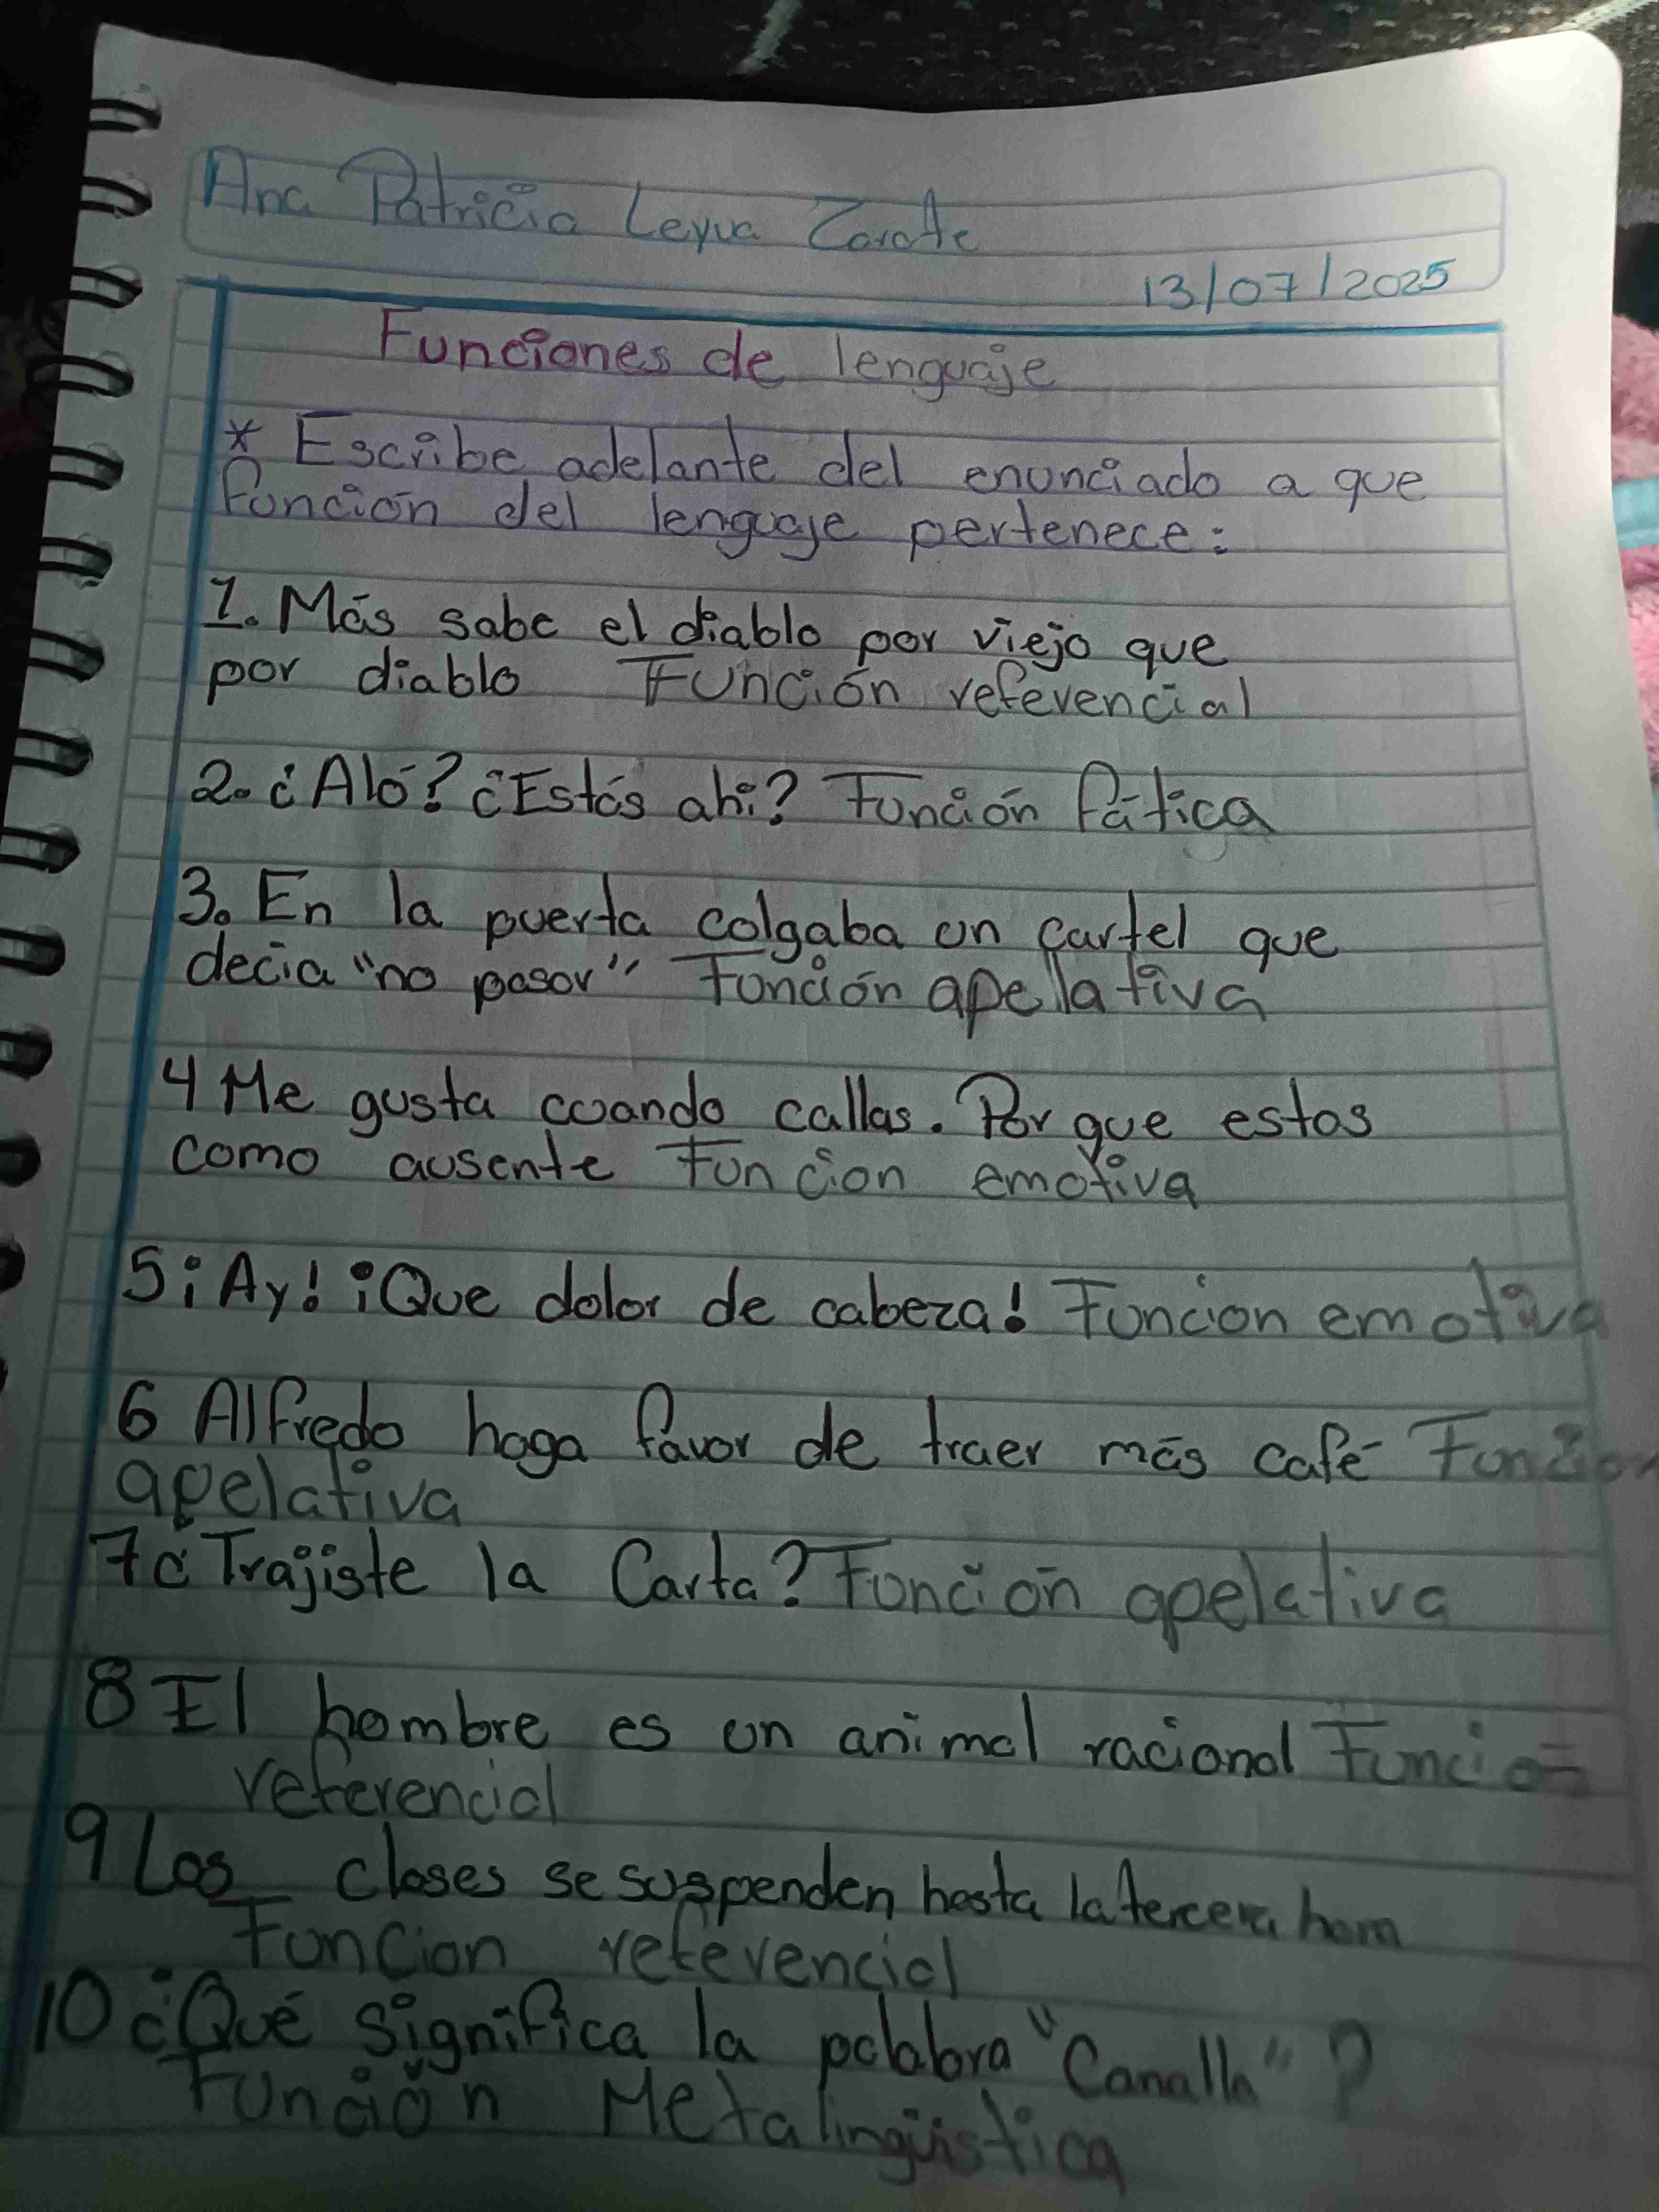 Ana Patricia Leyva Zarate
13/07/2025
Funciones de lenguaje
* Escribe adelante del enunciado a que
función del lenguaje pertenece:
1. Más sabe el diablo por viejo que
por diablo Función referencial
2. ¿Aló? ¿Estás ahi? Función fática
3. En la puerta colgaba un cartel que
decia "no pasar" Función apellativa
4 Me gusta cuando callas. Por que estas
como ausente Funcion emotiva
5 ¡Ay! ¡Que dolor de cabeza! Funcion emotiva
6 Alfredo haga favor de traer más café Funcion
apelativa
7 ¿Trajiste la Carta? Función apelativa
8 El hombre es un animal racional Función
referencial
9 Las clases se suspenden hasta la tercera hora
Funcion referencial
10 ¿Qué significa la palabra "Canalla"?
Función Metalingüística